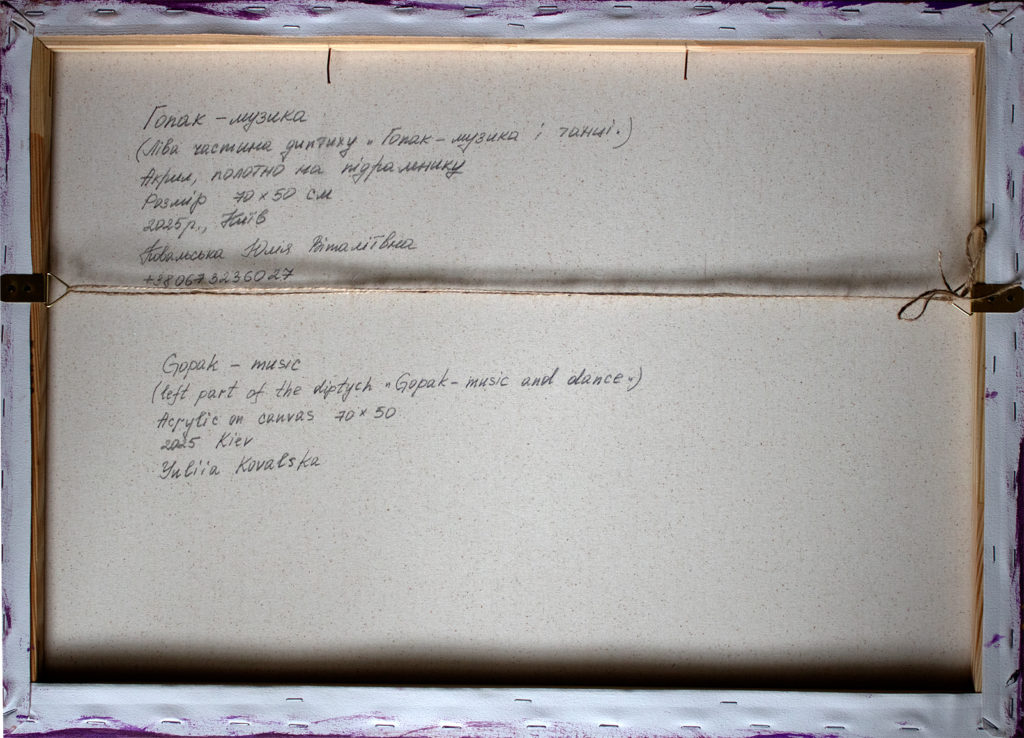 Гопак – музика
(Ліва частина диптиху „Гопак – музика і танці.)
Акрил, полотно на підрамнику
Розмір 70 × 50 см
2025 р., Київ
Ковальська Юлія Віталіївна
+380673236027
Gopak – music
(left part of the diptych „Gopak – music and dance“)
Acrylic on canvas 70 × 50
2025 Kiev
Yuliia Kovalska